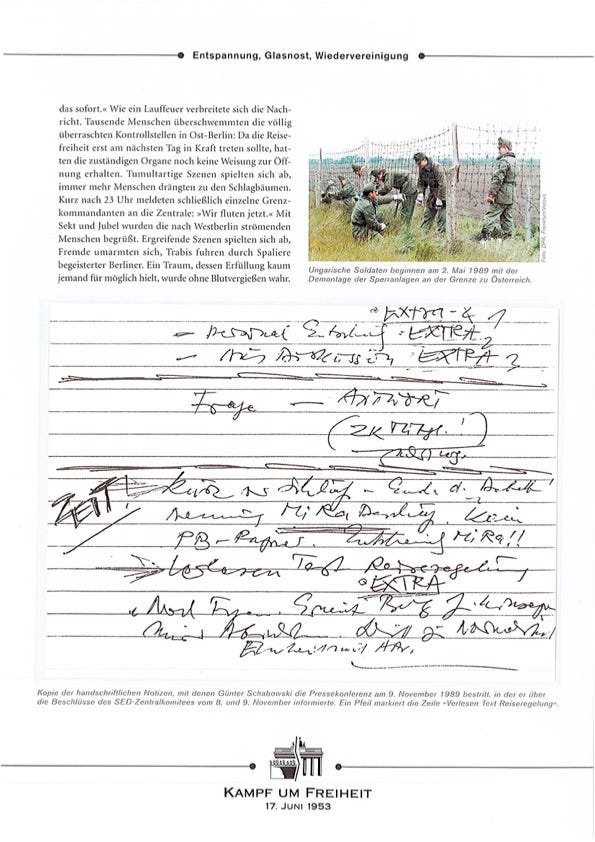 Entspannung, Glasnost, Wiedervereinigung
das sofort.« Wie ein Lauffeuer verbreitete sich die Nach-
richt. Tausende Menschen überschwemmten die völlig
überraschten Kontrollstellen in Ost-Berlin: Da die Reise-
freiheit erst am nächsten Tag in Kraft treten sollte, hat-
ten die zuständigen Organe noch keine Weisung zur Öff-
nung erhalten. Tumultartige Szenen spielten sich ab,
immer mehr Menschen drängten zu den Schlagbäumen.
Kurz nach 23 Uhr meldeten schließlich einzelne Grenz-
kommandanten an die Zentrale: »Wir fluten jetzt.« Mit
Sekt und Jubel wurden die nach Westberlin strömenden
Menschen begrüßt. Ergreifende Szenen spielten sich ab,
Fremde umarmten sich, Trabis fuhren durch Spaliere
begeisterter Berliner. Ein Traum, dessen Erfüllung kaum
jemand für möglich hielt, wurde ohne Blutvergießen wahr.
Ungarische Soldaten beginnen am 2. Mai 1989 mit der
Demontage der Sperranlagen an der Grenze zu Österreich.
EXTRA 1
EXTRA 2
EXTRA 3
Frage — ANTWORT
(ZK Mitgl.!)
ZEIT! Kurz vor Schluß – Ende d. Debatte
Nennung MiRa Kein
PB-Papier. MiRa!!
Verlesen Text Reiseregelung
EXTRA
Kopie der handschriftlichen Notizen, mit denen Günter Schabowski die Pressekonferenz am 9. November 1989 bestritt, in der er über
die Beschlüsse des SED-Zentralkomitees vom 8. und 9. November informierte. Ein Pfeil markiert die Zeile »Verlesen Text Reiseregelung«.
KAMPF UM FREIHEIT
17. JUNI 1953